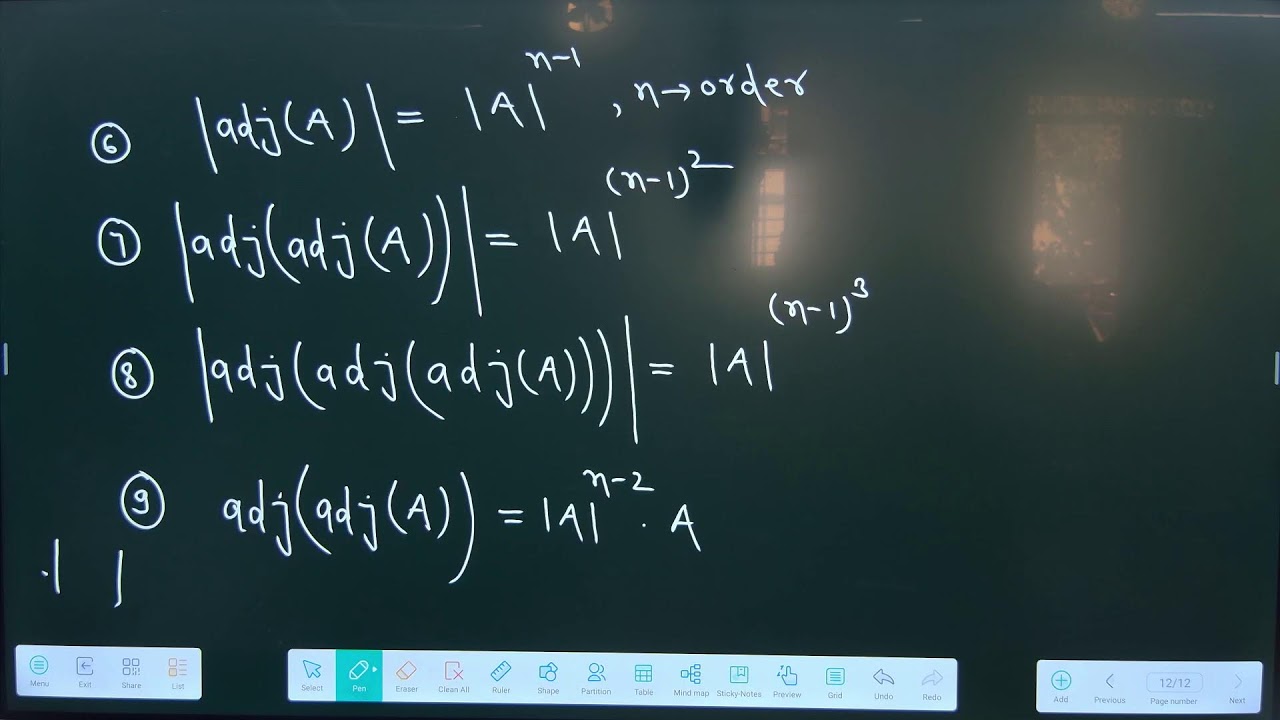 ⑥ |adj(A)| = |A|^{n-1} , n→order
⑦ |adj(adj(A))| = |A|^{(n-1)^2}
⑧ |adj(adj(adj(A)))| = |A|^{(n-1)^3}
⑨ adj(adj(A)) = |A|^{n-2} . A
. | |
Menu Exit Share List Select Pen Eraser Clean All Ruler Shape Partition Table Mind map Sticky-Notes Preview Grid Undo Redo Add Previous 12/12 Page number Next